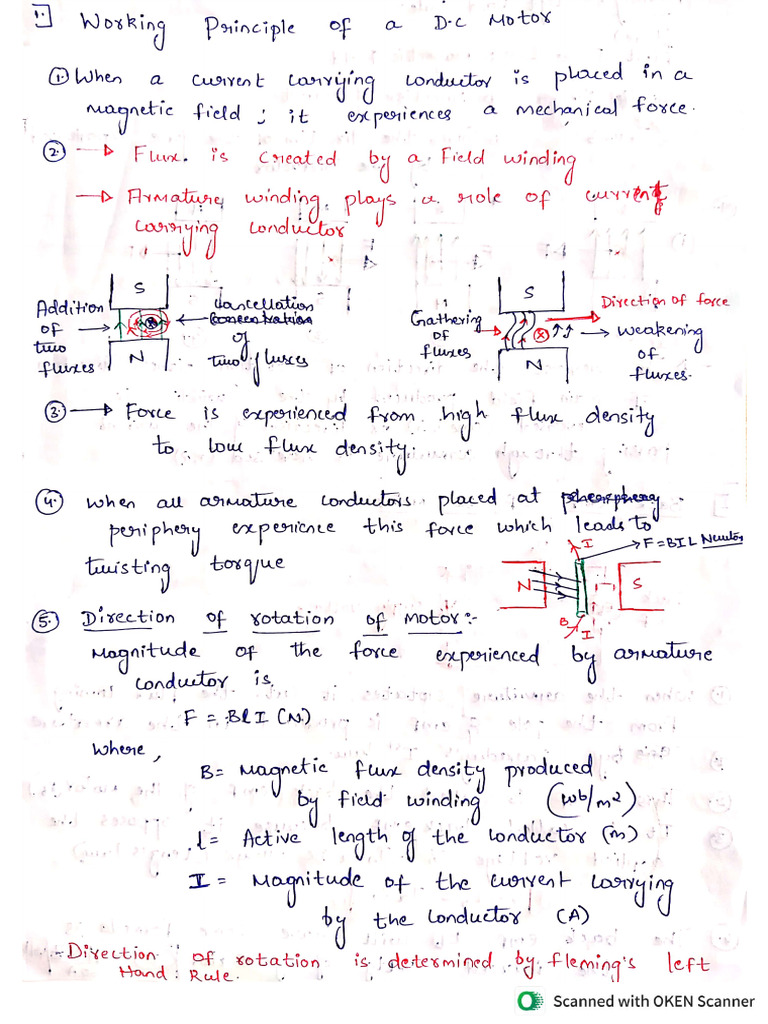 1. Working Principle of a D.C Motor
1. When a current carrying conductor is placed in a
magnetic field; it experiences a mechanical force.
2. → Flux is created by a Field winding
→ Armature winding plays a role of current
carrying conductor
S
N
Addition
of
two
fluxes
Cancellation
concentration
of
two fluxes
S
N
Gathering
of
fluxes
Direction of force
weakening
of
fluxes.
3. → Force is experienced from high flux density
to low flux density.
4. When all armature conductors placed at
periphery experience this force which leads to
twisting torque
I
F=BIL Newton
N
S
B
I
5. Direction of rotation of motor:-
Magnitude of the force experienced by armature
conductor is,
F = BlI (N)
where,
B = Magnetic flux density produced
by field winding (wb/m²)
l = Active length of the conductor (m)
I = Magnitude of the current carrying
by the conductor (A)
- Direction of rotation is determined by fleming's left
Hand Rule.
Scanned with OKEN Scanner